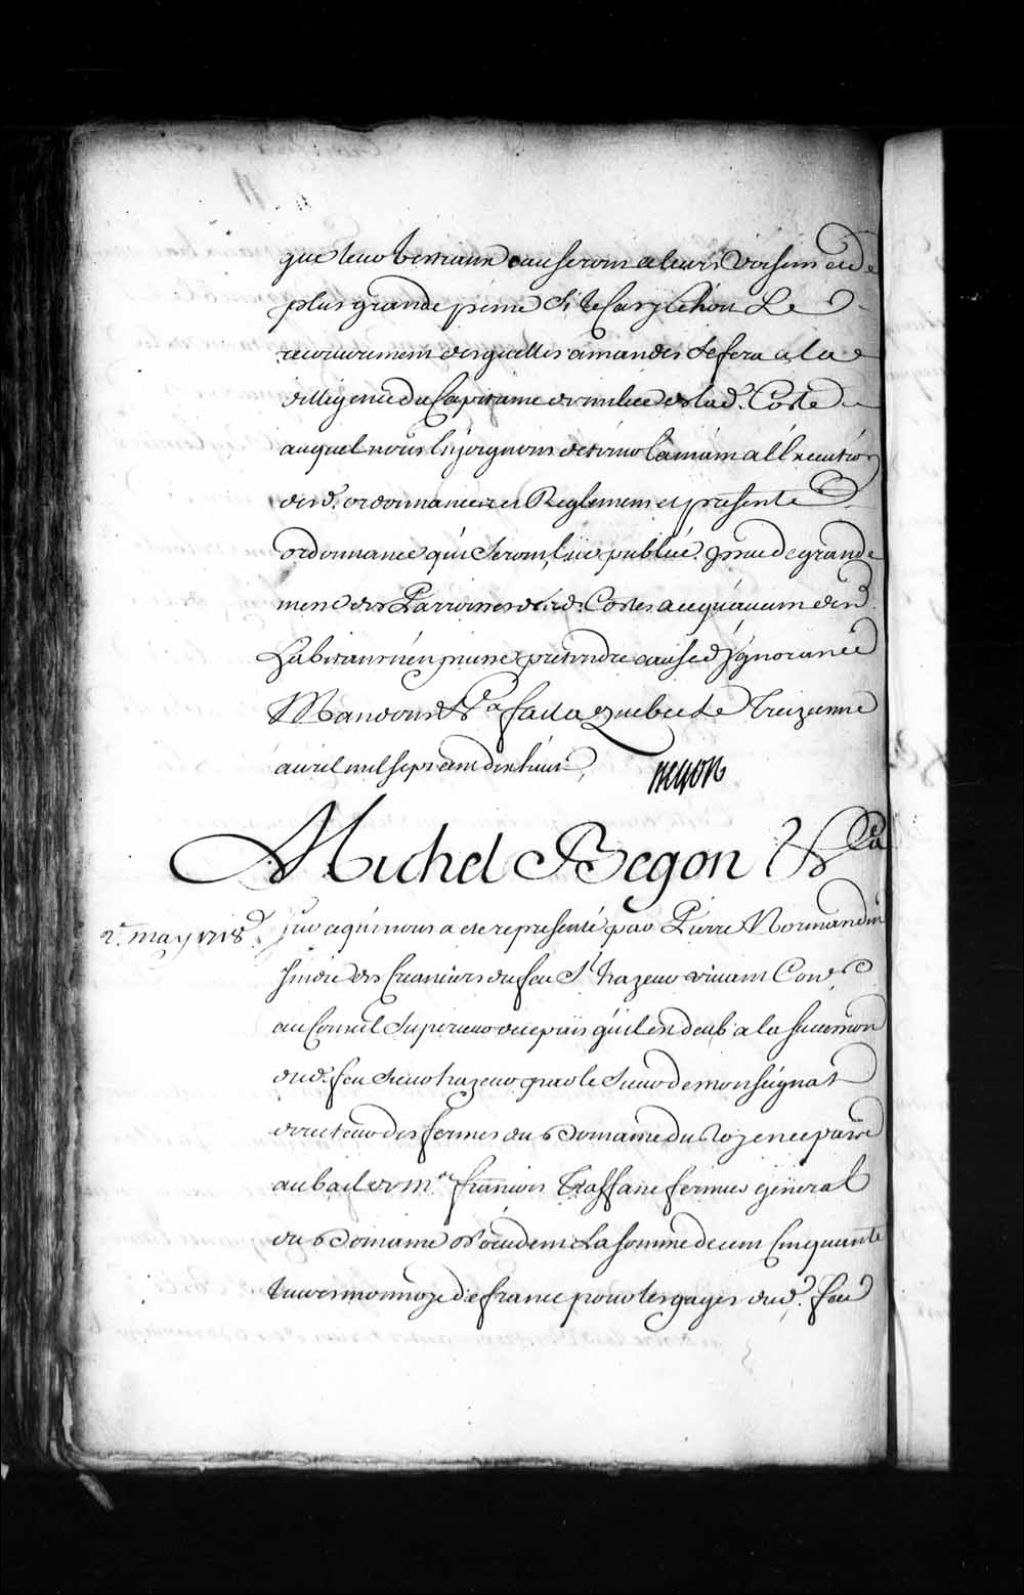 que leurs bestiaux causeront a leurs Voisins et de
plus grande peine Si le Cas y Echeoit Le
recouvrement desquelles amandes Se fera a la
dilligence du Capitaine de milice de lad.^e Coste
auquel nous Enjoignons de tenir la main a l'Execution
desd.^s ordonnances et Reglemens et presente
ordonnance qui Seront lües publiées issue de grande
messe des Parroisses desd.^s Costes a ce qu'aucun desd.^s
habitans n'en puisse pretendre cause d'Ygnorance
Mandons &^a fait a quebec le Treizieme
avril mil sept cent dix huit,
Begon
Michel Begon &^ca
2.^e may 1718.
Sur ce qui nous a eté representé par Pierre Normandin
sindic des Creanciers du feu S.^r hazeur vivant Con.^er
au Conseil Superieur de ce païs qu'il est deub a la succession
dud.^t feu Sieur hazeur par le Sieur de monseignat
directeur des fermes du Domaine du Roy en ce païs
au bail de M.^re françois Traffane fermier general
du Domaine d'occident La somme de cent Cinquante
livres monnoye de france pour les gages dud.^t feu